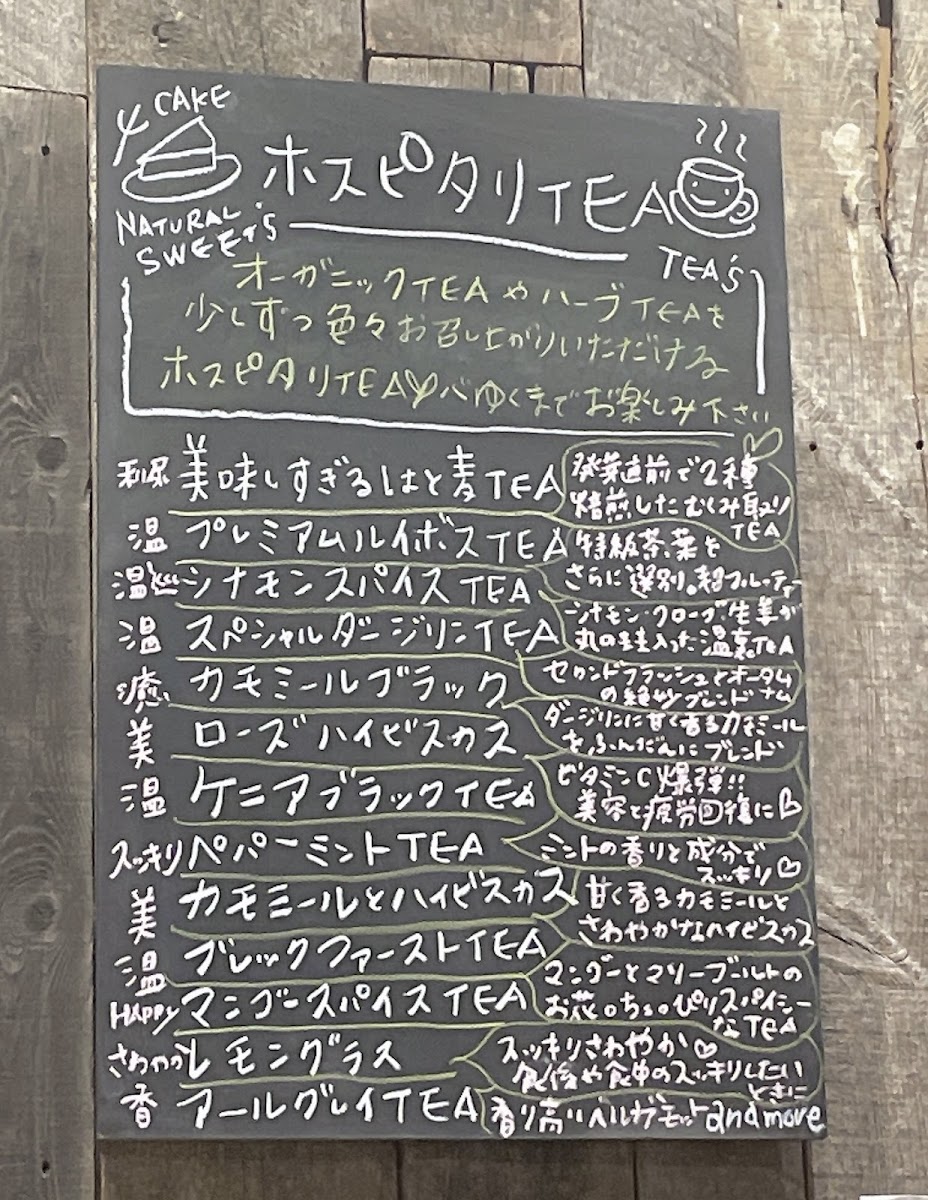 CAKE
ホスピタリTEA
NATURAL
SWEETS
TEA's
オーガニックTEAやハーブTEAを
少しずつ色々お召し上がりいただける
ホスピタリTEA♡心ゆくまでお楽しみ下さい
利尿 美味しすぎるはと麦TEA
発芽直前で2種
焙煎したむくみ取り
TEA
温 プレミアムルイボスTEA
特級茶葉を
さらに選別。超フルーティー
温 シナモンスパイスTEA
シナモン・クローブ・生姜が
丸のまま入った温裏TEA
温 スペシャルダージリンTEA
セカンドフラッシュとオータムナム
の絶妙ブレンド
癒 カモミールブラック
ダージリンに甘く香るカモミール
をふんだんにブレンド
美 ローズハイビスカス
ビタミンC爆弾!!
美容と疲労回復に♡
温 ケニアブラックTEA
スッキリ ペパーミントTEA
ミントの香りと成分で
スッキリ♡
美 カモミールとハイビスカス
甘く香るカモミールと
さわやかなハイビスカス
温 ブレックファーストTEA
HAPPY マンゴースパイスTEA
マンゴーとマリーゴールドの
お花。ちょっぴりスパイシー
なTEA
さわやか レモングラス
スッキリさわやか♡
食後や食中のスッキリしたい
ときに
香 アールグレイTEA
香り高いベルガモット
and more